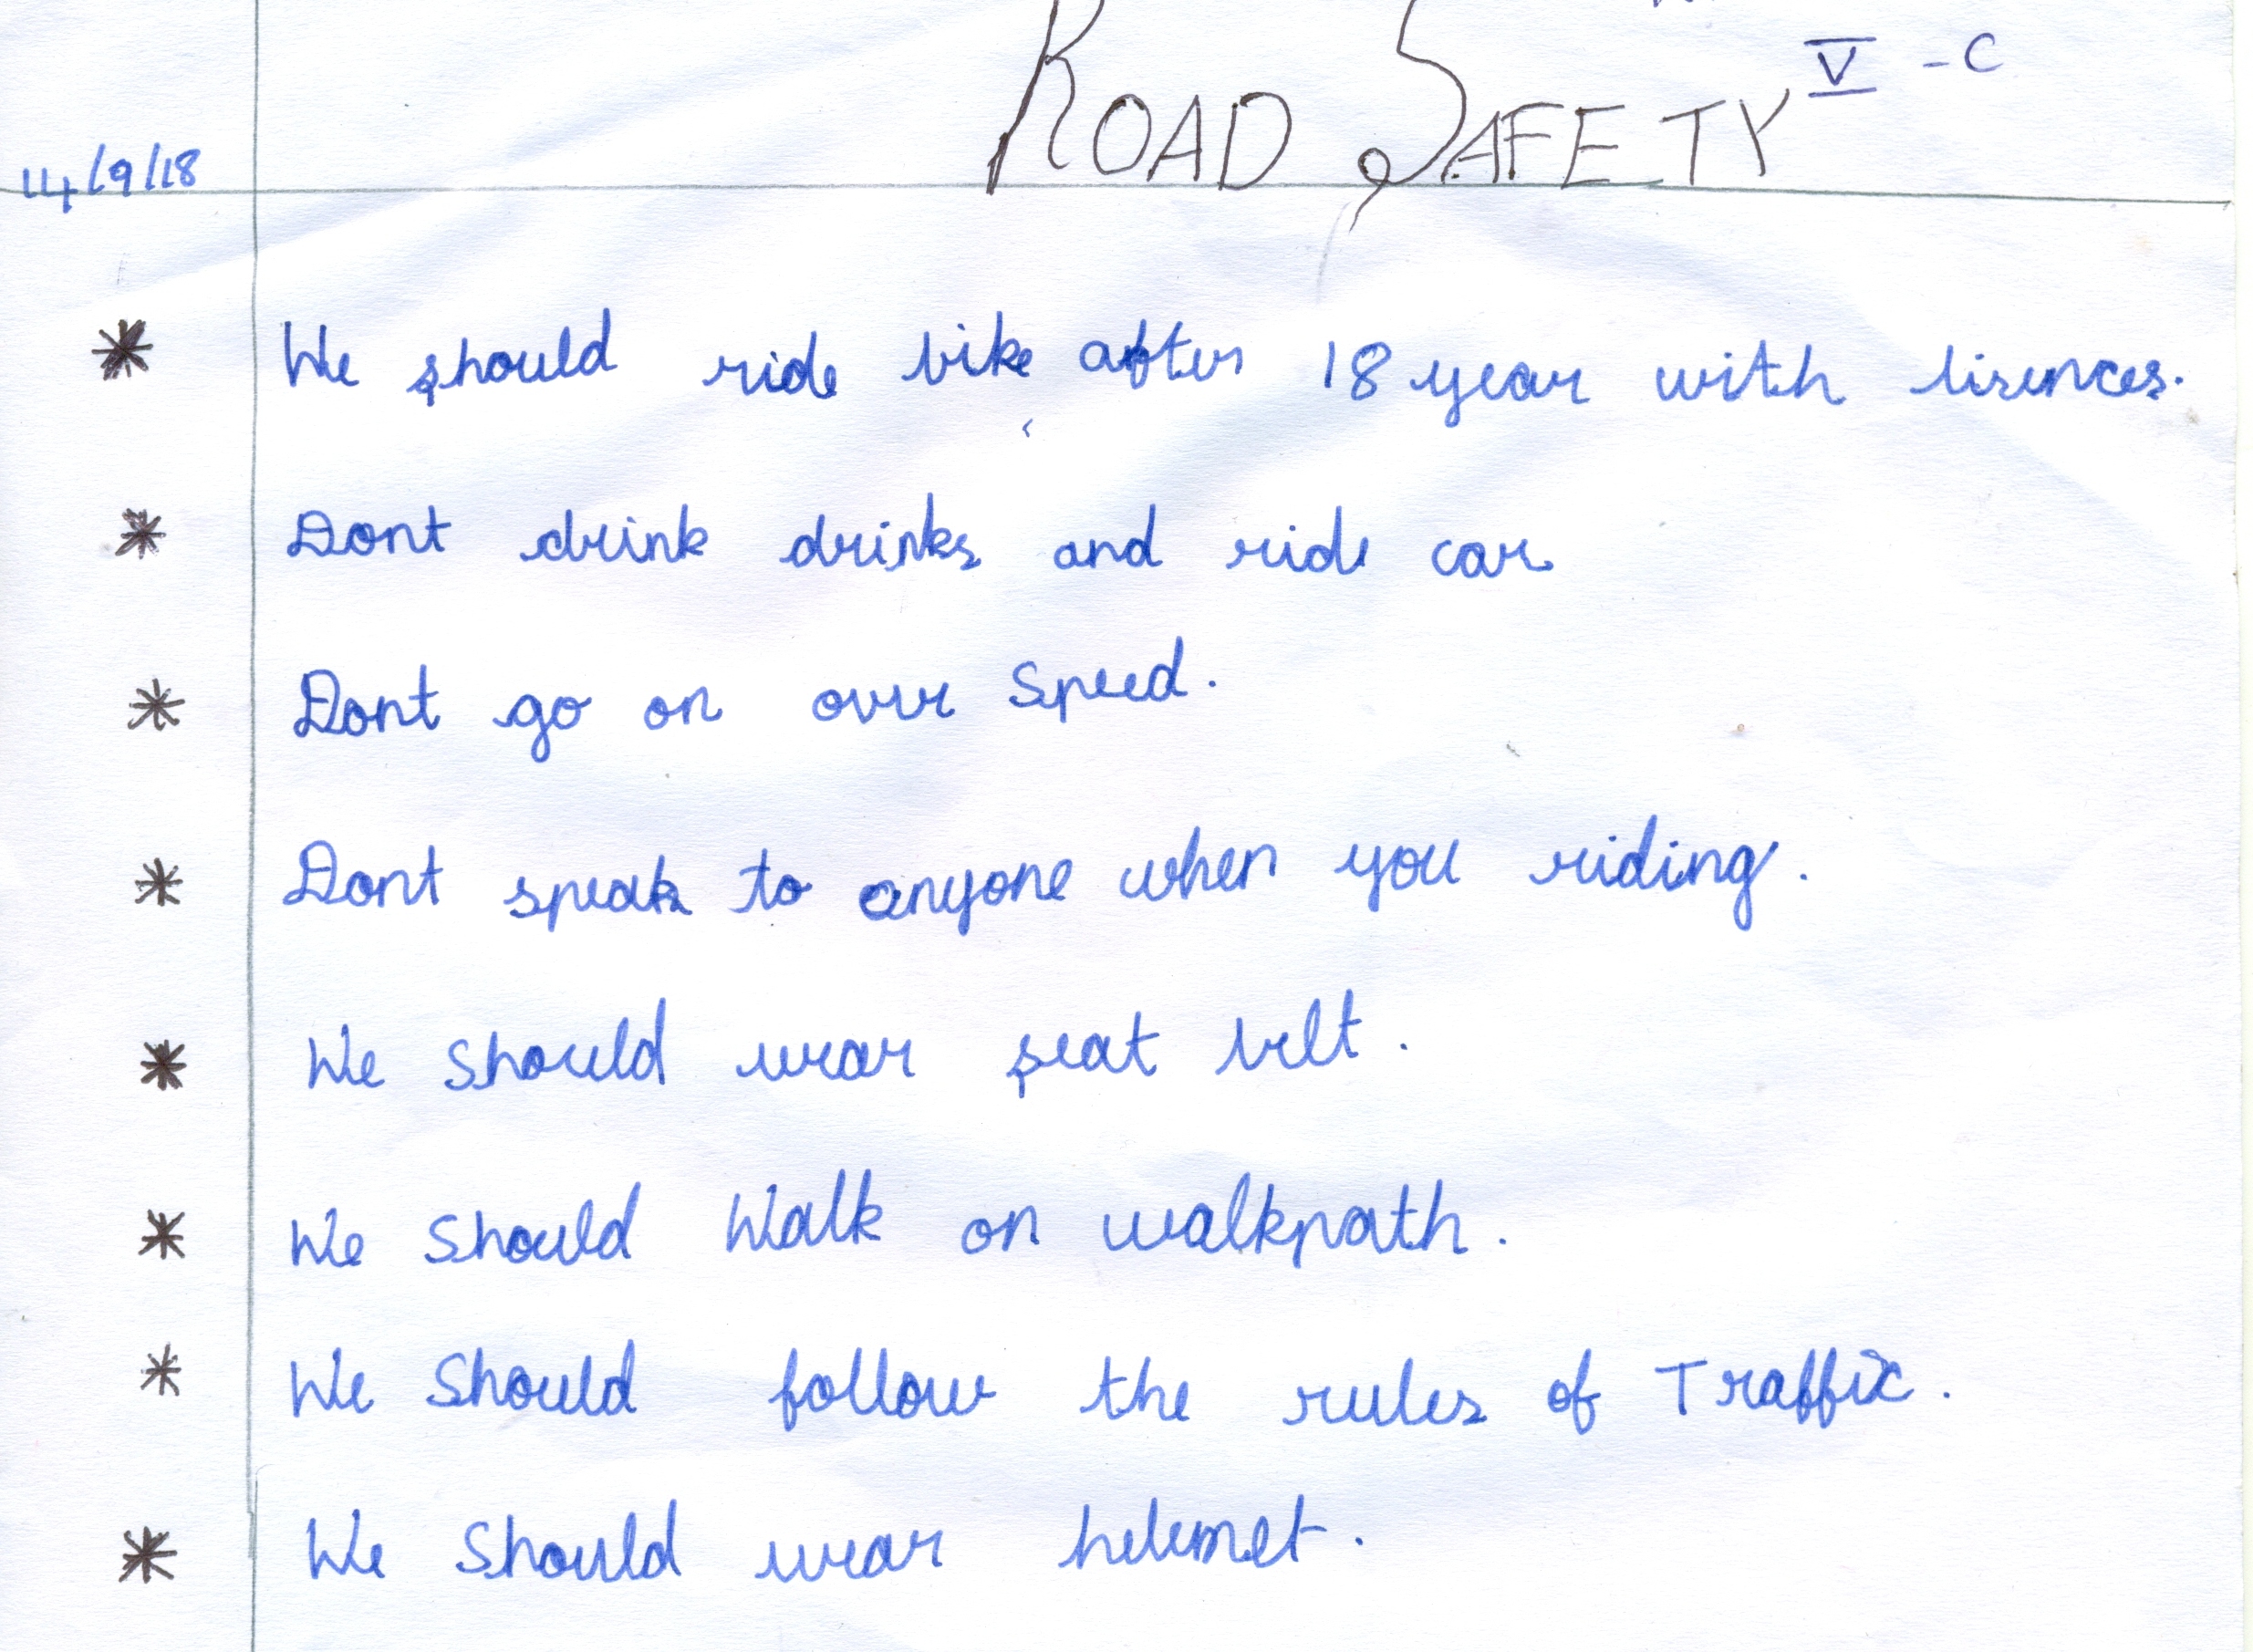 V - C
ROAD SAFETY
14/9/18
* We should ride bike after 18 year with lisences.
* Dont drink drinks and ride car
* Dont go on over Speed.
* Dont speak to anyone when you riding.
* We should wear seat belt.
* We should Walk on walkpath.
* We Should follow the rules of Traffic.
* We Should wear helemet.